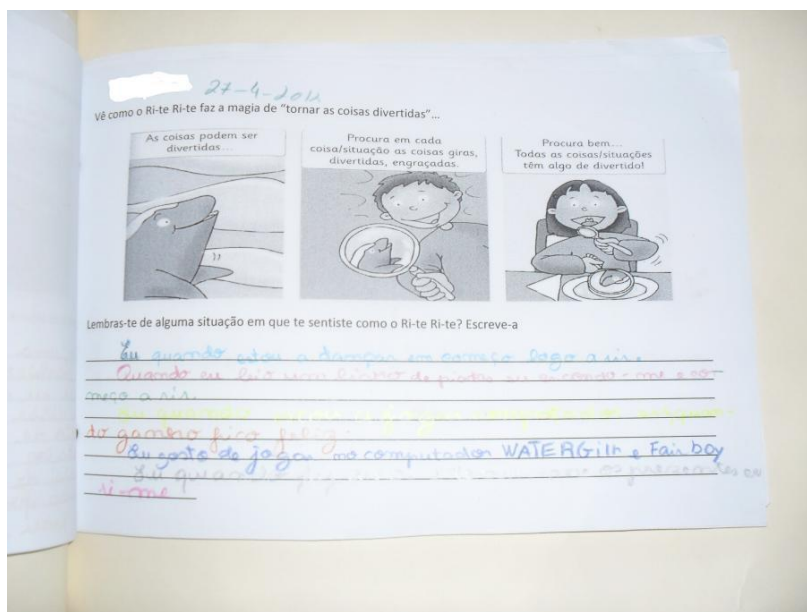 27-4-201
Vê como o Ri-te Ri-te faz a magia de "tornar as coisas divertidas"...
As coisas podem ser
divertidas...
Procura em cada
coisa/situação as coisas giras,
divertidas, engraçadas.
Procura bem...
Todas as coisas/situações
têm algo de divertido!
Lembras-te de alguma situação em que te sentiste como o Ri-te Ri-te? Escreve-a
Eu quando estou a dançar em começo logo a rir.
Quando eu leio um livro de piadas eu escondo-me e co-
meço a rir.
Eu quando
do ganho fico feliz.
Eu gosto de jogar no computador WATERGilr e Fair boy
Eu quando faço os presentes eu
ri-me